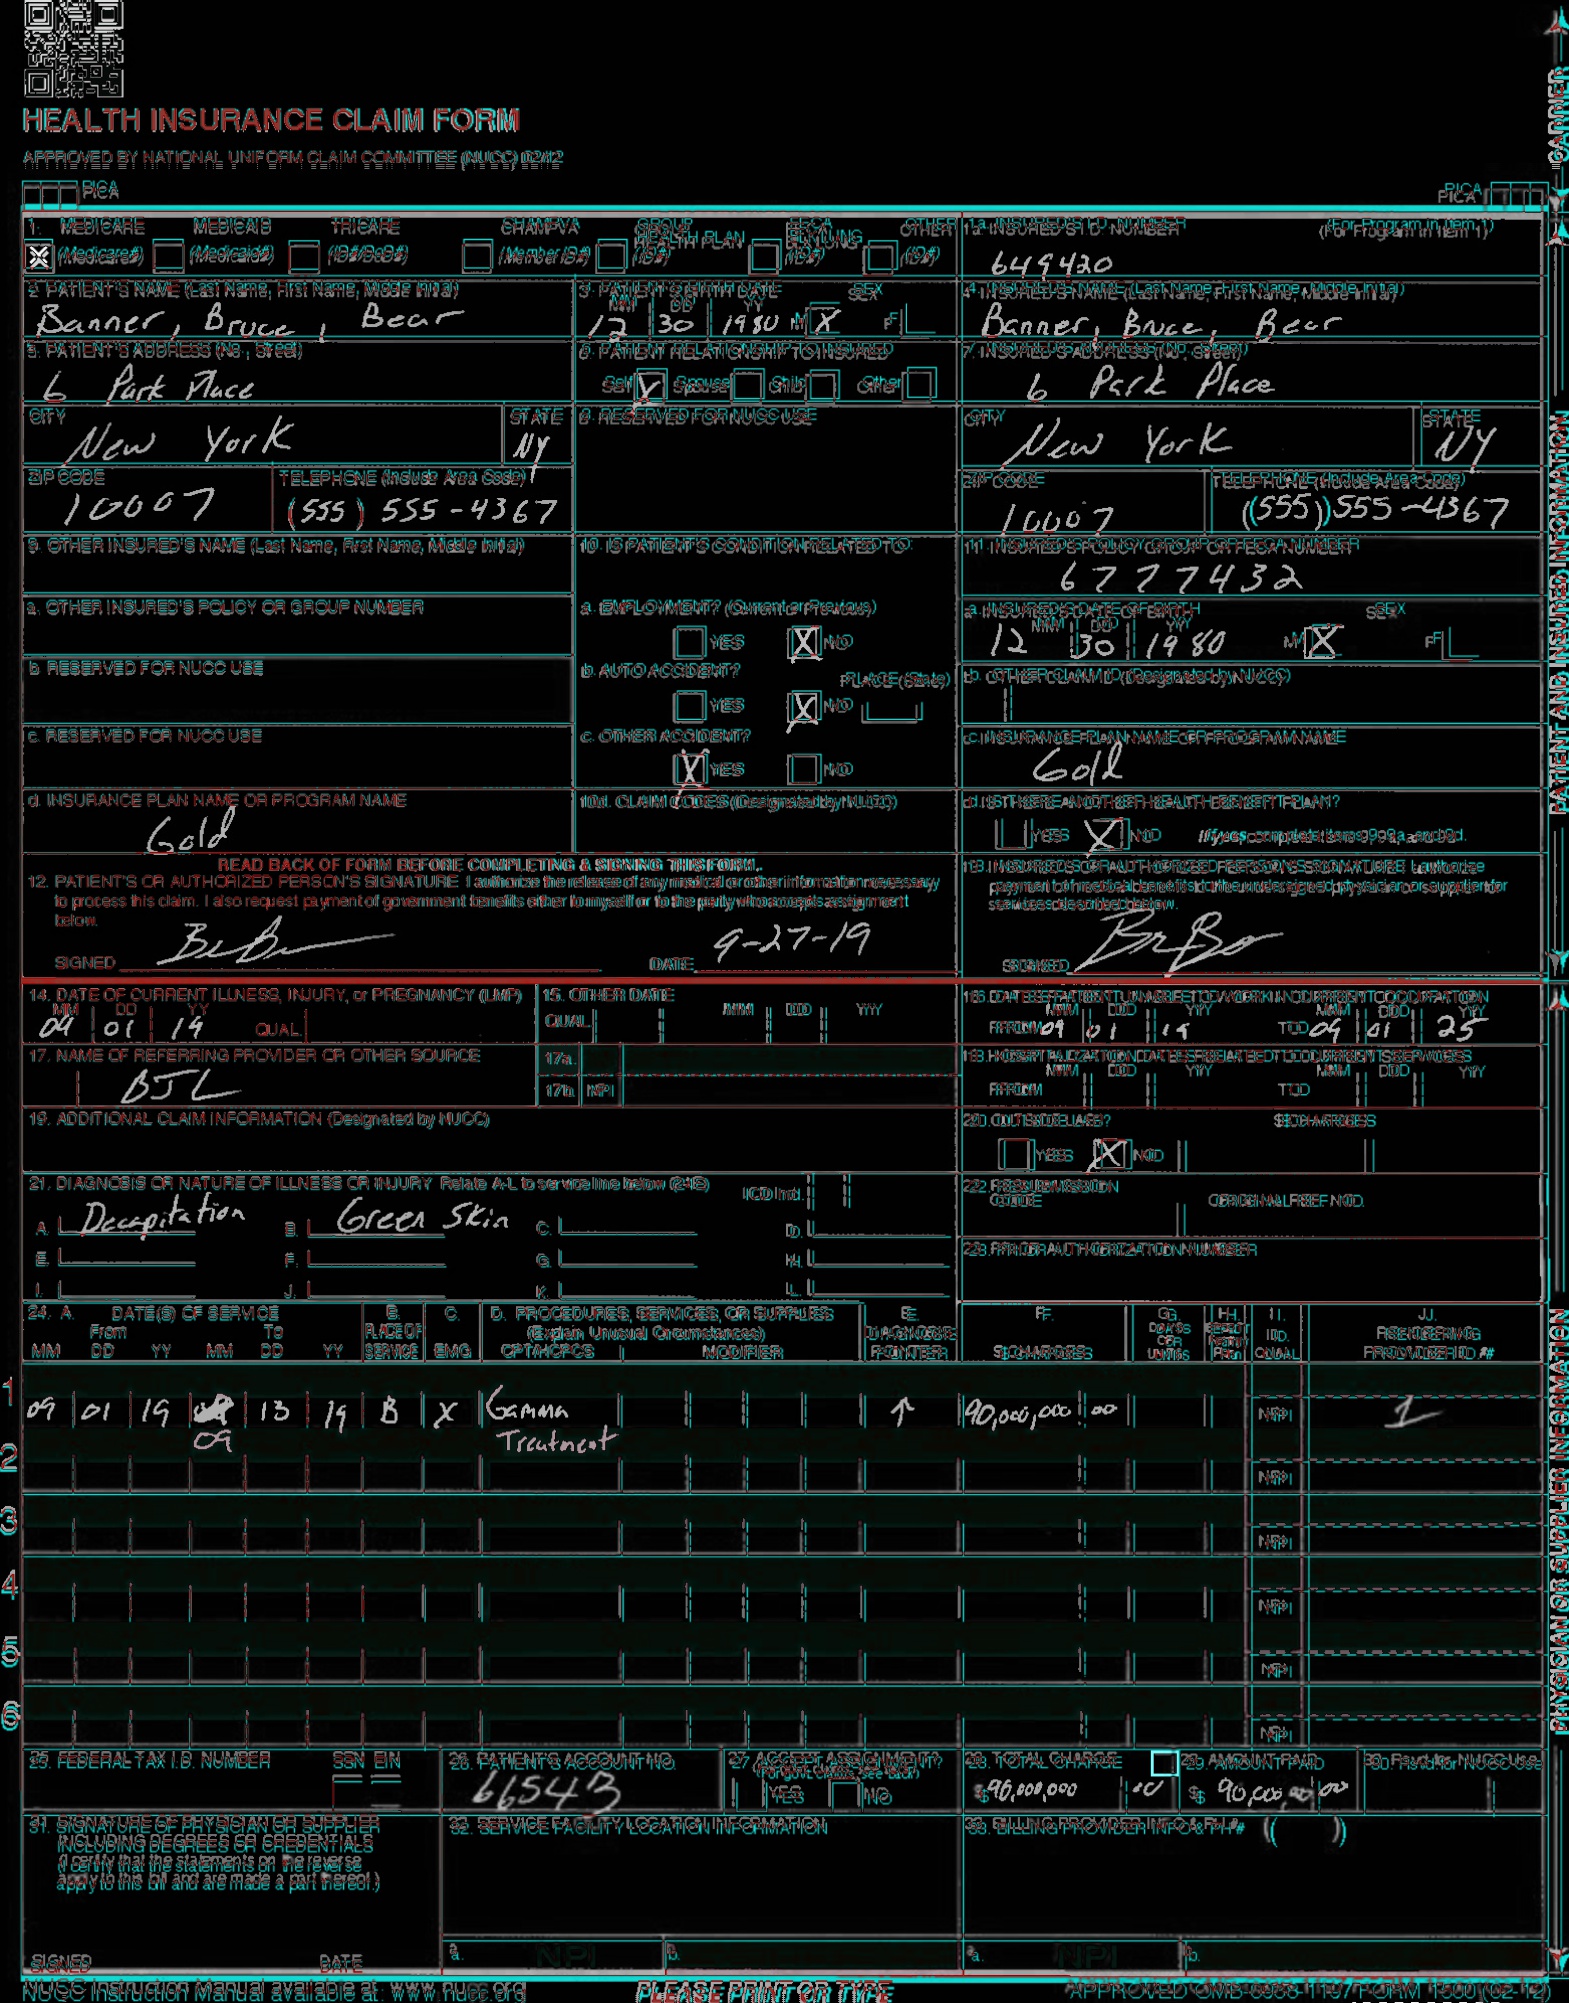 HEALTH INSURANCE CLAIM FORM
APPROVED BY NATIONAL UNIFORM CLAIM COMMITTEE (NUCC) 02/12
PICA
PICA
CARRIER
1. MEDICARE MEDICAID TRICARE CHAMPVA GROUP HEALTH PLAN FECA BLK LUNG OTHER
(Medicare#) (Medicaid#) (ID#/DoD#) (Member ID#) (ID#) (ID#) (ID#)
1a. INSURED'S I.D. NUMBER (For Program in Item 1)
649420
2. PATIENT'S NAME (Last Name, First Name, Middle Initial)
Banner, Bruce, Bear
3. PATIENT'S BIRTH DATE SEX
MM DD YY
12 30 1980 M X F
4. INSURED'S NAME (Last Name, First Name, Middle Initial)
Banner, Bruce, Bear
5. PATIENT'S ADDRESS (No., Street)
6 Park Place
6. PATIENT RELATIONSHIP TO INSURED
Self X Spouse Child Other
7. INSURED'S ADDRESS (No., Street)
6 Park Place
CITY STATE
New York NY
8. RESERVED FOR NUCC USE
CITY STATE
New York NY
ZIP CODE TELEPHONE (Include Area Code)
10007 (555) 555-4367
ZIP CODE TELEPHONE (Include Area Code)
10007 (555) 555-4367
9. OTHER INSURED'S NAME (Last Name, First Name, Middle Initial)
10. IS PATIENT'S CONDITION RELATED TO:
11. INSURED'S POLICY GROUP OR FECA NUMBER
6777432
a. OTHER INSURED'S POLICY OR GROUP NUMBER
a. EMPLOYMENT? (Current or Previous)
YES X NO
a. INSURED'S DATE OF BIRTH SEX
MM DD YY
12 30 1980 M X F
b. RESERVED FOR NUCC USE
b. AUTO ACCIDENT? PLACE (State)
YES X NO
b. OTHER CLAIM ID (Designated by NUCC)
c. RESERVED FOR NUCC USE
c. OTHER ACCIDENT?
X YES NO
c. INSURANCE PLAN NAME OR PROGRAM NAME
Gold
d. INSURANCE PLAN NAME OR PROGRAM NAME
Gold
10d. CLAIM CODES (Designated by NUCC)
d. IS THERE ANOTHER HEALTH BENEFIT PLAN?
YES X NO If yes, complete items 9, 9a, and 9d.
READ BACK OF FORM BEFORE COMPLETING & SIGNING THIS FORM.
12. PATIENT'S OR AUTHORIZED PERSON'S SIGNATURE I authorize the release of any medical or other information necessary
to process this claim. I also request payment of government benefits either to myself or to the party who accepts assignment
below.
SIGNED DATE 9-27-19
13. INSURED'S OR AUTHORIZED PERSON'S SIGNATURE I authorize
payment of medical benefits to the undersigned physician or supplier for
services described below.
SIGNED
PATIENT AND INSURED INFORMATION
14. DATE OF CURRENT ILLNESS, INJURY, or PREGNANCY (LMP)
MM DD YY
09 01 19 QUAL.
15. OTHER DATE
QUAL. MM DD YY
16. DATES PATIENT UNABLE TO WORK IN CURRENT OCCUPATION
MM DD YY MM DD YY
FROM 09 01 19 TO 09 01 25
17. NAME OF REFERRING PROVIDER OR OTHER SOURCE
BJL
17a.
17b. NPI
18. HOSPITALIZATION DATES RELATED TO CURRENT SERVICES
MM DD YY MM DD YY
FROM TO
19. ADDITIONAL CLAIM INFORMATION (Designated by NUCC)
20. OUTSIDE LAB? $ CHARGES
YES X NO
21. DIAGNOSIS OR NATURE OF ILLNESS OR INJURY Relate A-L to service line below (24E) ICD Ind.
A. Decapitation B. Green Skin C. D.
E. F. G. H.
I. J. K. L.
22. RESUBMISSION CODE ORIGINAL REF. NO.
23. PRIOR AUTHORIZATION NUMBER
24. A. DATE(S) OF SERVICE B. C. D. PROCEDURES, SERVICES, OR SUPPLIES E. F. G. H. I. J.
From To PLACE OF (Explain Unusual Circumstances) DIAGNOSIS DAYS OR UNITS EPSDT Family Plan ID. RENDERING
MM DD YY MM DD YY SERVICE EMG CPT/HCPCS MODIFIER POINTER $ CHARGES QUAL. PROVIDER ID. #
1 09 01 19 09 13 19 B X Gamma Treatment ↑ 90,000,000 00 NPI 1
2 NPI
3 NPI
4 NPI
5 NPI
6 NPI
PHYSICIAN OR SUPPLIER INFORMATION
25. FEDERAL TAX I.D. NUMBER SSN EIN
26. PATIENT'S ACCOUNT NO.
66543
27. ACCEPT ASSIGNMENT?
(For govt. claims, see back)
YES NO
28. TOTAL CHARGE
$ 90,000,000 00
29. AMOUNT PAID
$ 90,000,000 00
30. Rsvd for NUCC Use
31. SIGNATURE OF PHYSICIAN OR SUPPLIER
INCLUDING DEGREES OR CREDENTIALS
(I certify that the statements on the reverse
apply to this bill and are made a part thereof.)
SIGNED DATE
32. SERVICE FACILITY LOCATION INFORMATION
a. NPI b.
33. BILLING PROVIDER INFO & PH # ( )
a. NPI b.
NUCC Instruction Manual available at: www.nucc.org
PLEASE PRINT OR TYPE
APPROVED OMB-0938-1197 FORM 1500 (02-12)